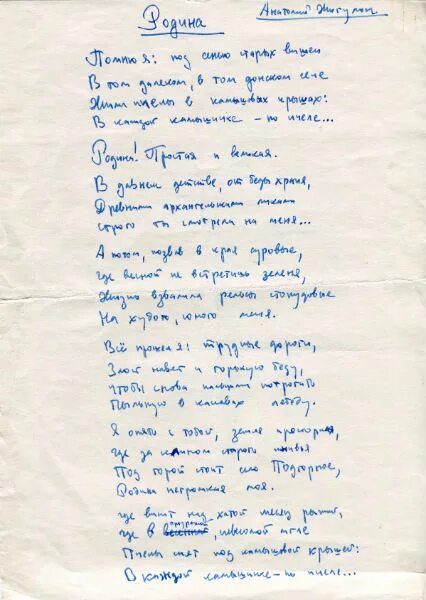 Родина
Анатолий Жигулин
Помню я: под сенью старых вишен
В том далеком, в том донском селе
Жили пчелы в камышовых крышах:
В каждой камышинке – по пчеле...
Родина! Простая и великая.
В давнем детстве, от беды храня,
Древними архангельскими ликами
Строго ты смотрела на меня...
А потом, позвав в края суровые,
Где весной не встретишь зеленя,
Жизнь взвалила рельсы стопудовые
На худого, юного меня.
Всё прошел я: трудные дороги,
Злой навет и горькую беду,
Чтобы снова пальцами потрогать
Пыльную в канавах лебеду.
Я опять с тобой, земля просторная,
Где за клином старого жнивья
Под горой стоит село Подгорное,
Родина негромкая моя.
Где висит над хатой месяц рыжий,
Где в прозрачной, невесомой мгле
Пчелы спят под камышовой крышей:
В каждой камышинке – по пчеле...